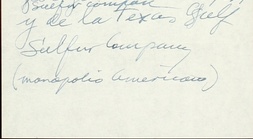 Sulfur Company
y de la Texas Gulf
Sulfur Company
(monopolio Americano)